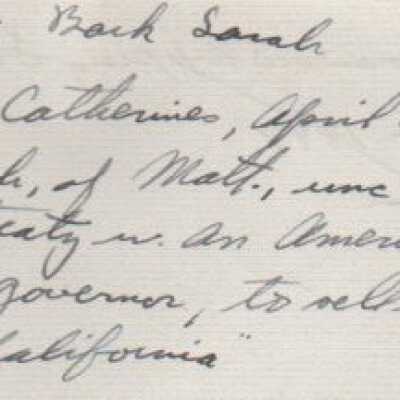 Back Sarah
Catherines, April
h, of Matt., unc
eaty w. an Amer
governor, to sell
California"